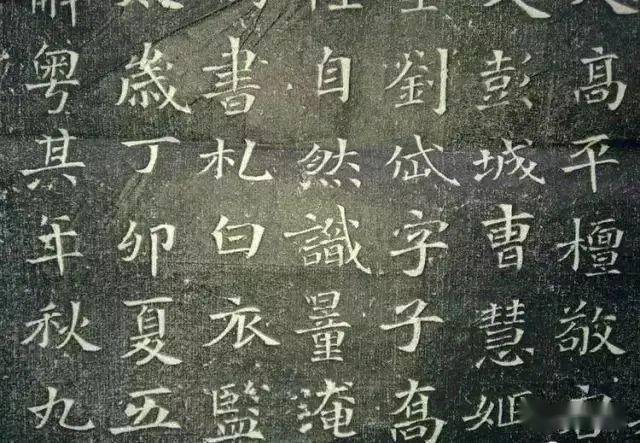 高平檀敬
彭城曹慧姬
劉岱字子喬
自然識量淹
書札白衣監
歲丁卯夏五
粵其年秋九